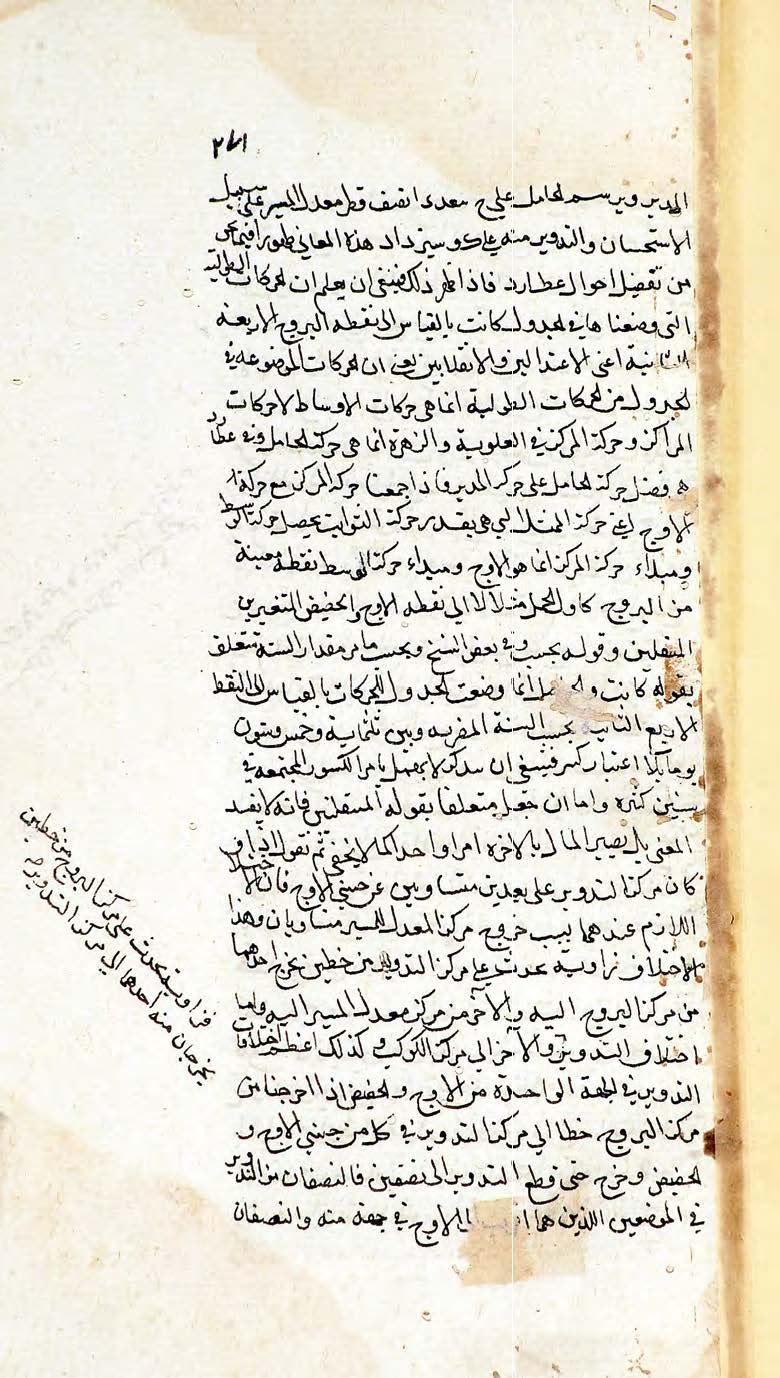 المدير ويرسم الحامل على ح سعدء انصف قطر معدل المسير على سبيل
الاستحسان والتدوير منه على ك وسيزداد هذه المعاني ظهورا فيما نحن
من تفصيل احوال عطارد فاذا ظهر ذلك فينبغي ان يعلم ان الحركات الطولية
التي وضعناها في الجدول كانت بالقياس الى نقطه البروج الاربعة
اعنى الاعتدالين والانقلابين يعني ان الحركات الموضوعه في
الجدول من الحركات الطولية انما هي حركات الاوساط لا حركات
المراكز وحركة المركز في العلوية والزهرة انما هي حركة الحامل وفي عطارد
فضل حركة الحامل على حركة المدير فاذا جمعنا حركة المركز مع حركة
الاوج اعني حركة الممثل التي هي بقدر حركة الثوابت يحصل حركة الوسط
ومبداء حركة المركز انما هو الاوج ومبداء حركة الوسط نقطة معينة
من البروج كاول الحمل مثلا لا الى نقطه الاوج والحضيض المتغيرين
المنتقلين وقوله بحسب وفي بعض النسخ وبحسب ما من مقدار السنة متعلق
بقوله كانت انما وضعت الجدول للحركات بالقياس الى النقط
الاربع بحسب السنة المصرية وبين ثلثماية وخمس وستون
يوما بلا اعتبار كسر فينبغي ان لا يهمل يا مر الكسور المجتمعه في
سنين كثيرة واما ان جعل متعلقا بقوله المنتقلتين فانه لا يفسد
المعنى بل يصير المال بالاخرة امرا واحدا كما لا يخفى ثم نقول اذا
كان مركز التدوير على بعدين متساويين عن جنبتي الاوج فان الاختلاف
اللازم عندهما بسبب خروج مركز المعدل للمسير متساويان وهذا
الاختلاف زاوية تحدث على مركز التدوير من خطين يخرج احدهما
من مركز البروج اليه والآخر من مركز معدل المسير اليه واما
اختلاف التدوير والآخر الى مركز الكوكب وكذلك اعظم اختلافات
التدوير في الجهة الواحدة من الاوج والحضيض اذا اخرجنا من
مركز البروج خطا الى مركز التدوير في كل من جنبتي الاوج و
الحضيض وخرج حتى قطع التدوير الى نصفين فالنصفان من التدوير
في الموضعين اللذين هما الاوج في جهة منه والنصفان
فزاوية تحدث على مركز البروج من خطين
يخرجان منه احدهما الى مركز التدوير